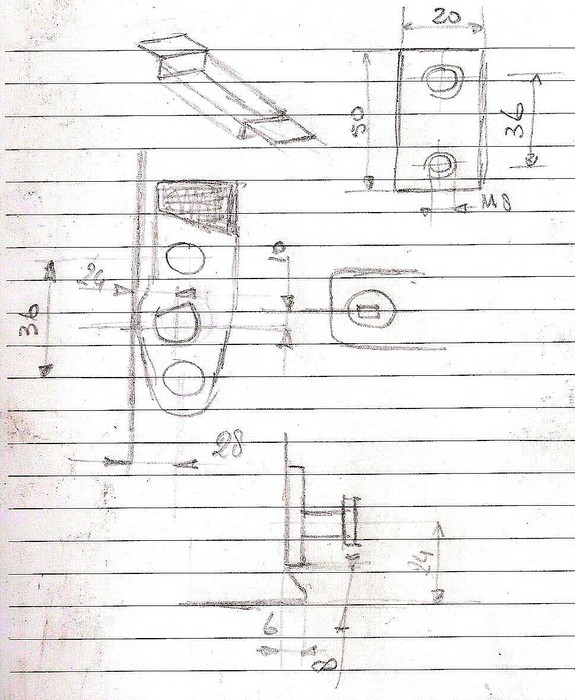 20
50
36
M8
10
24
36
28
24
6
8